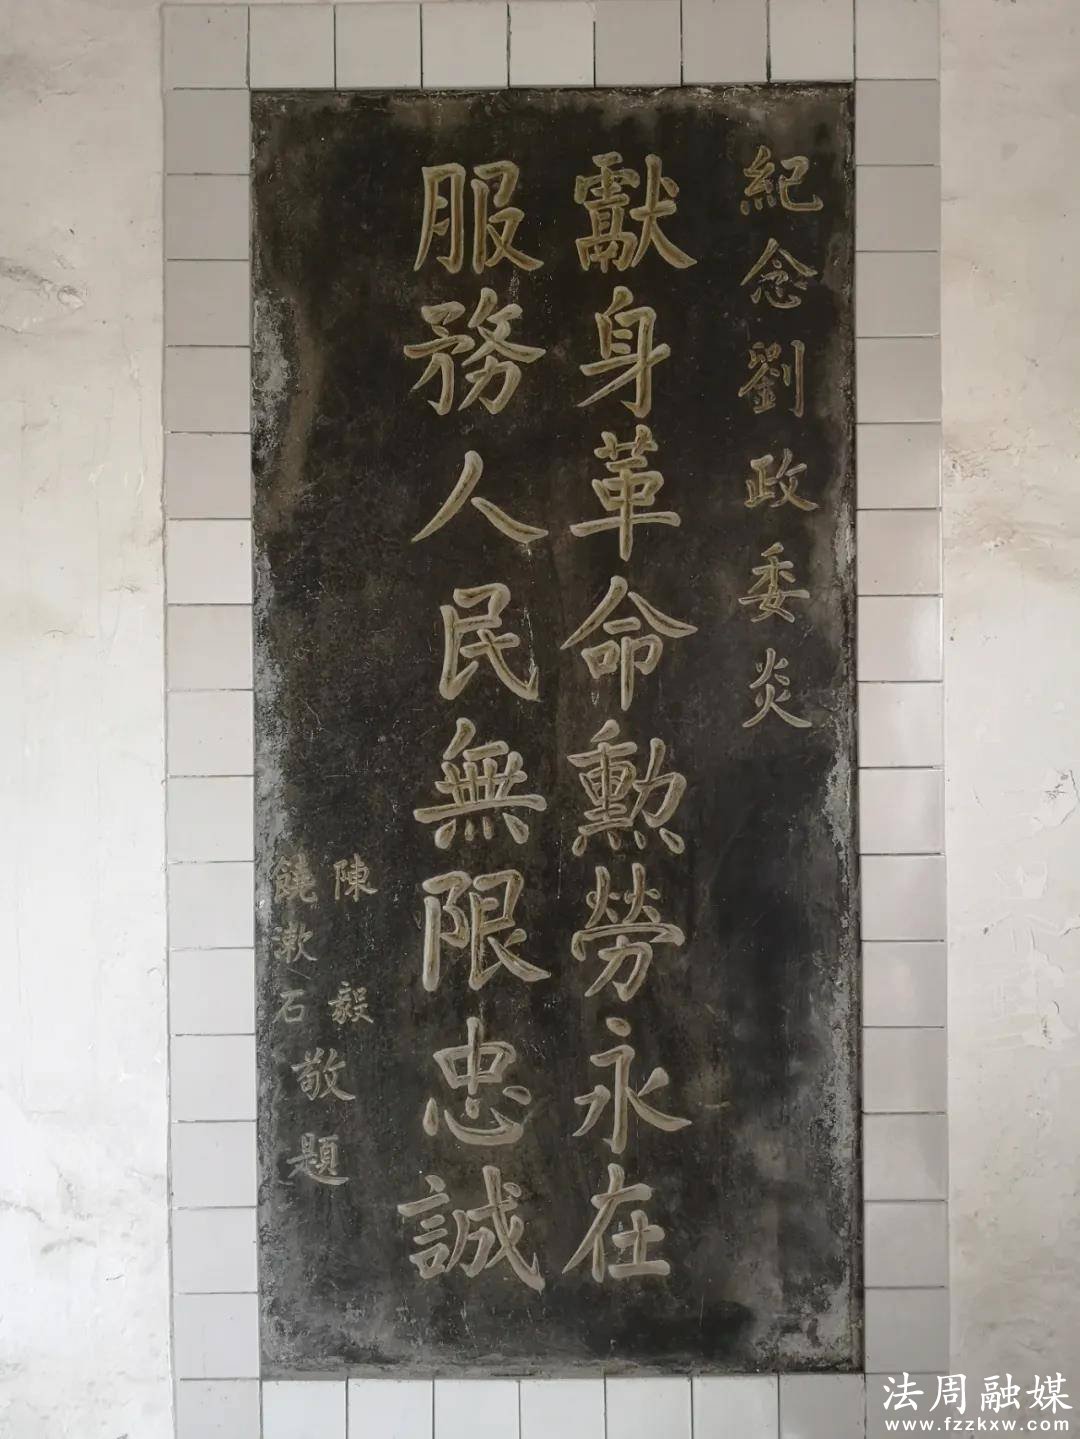 紀念劉政委炎
獻身革命勳勞永在
服務人民無限忠誠
陳毅
饒漱石
敬題
法周融媒
www.fzzkxw.com